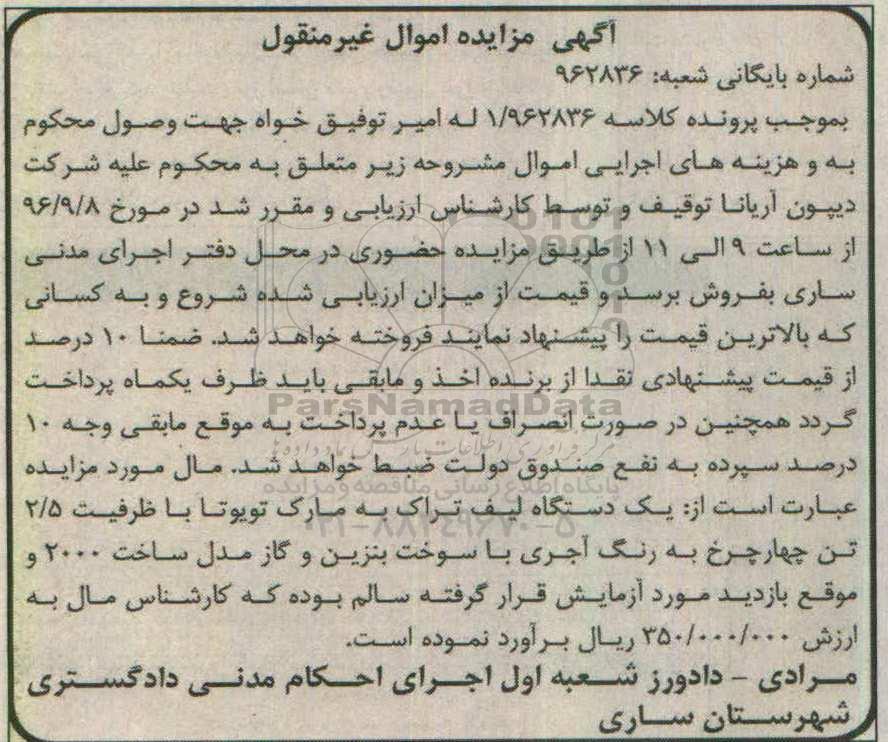 آگهی مزایده اموال غیرمنقول
شماره بایگانی شعبه: ۹۶۲۸۳۶
بموجب پرونده کلاسه ۱/۹۶۲۸۳۶ له امیر توفیق خواه جهت وصول محکوم
به و هزینه های اجرایی اموال مشروحه زیر متعلق به محکوم علیه شرکت
دیپون آریانا توقیف و توسط کارشناس ارزیابی و مقرر شد در مورخ ۹۶/۹/۸
از ساعت ۹ الی ۱۱ از طریق مزایده حضوری در محل دفتر اجرای مدنی
ساری بفروش برسد و قیمت از میزان ارزیابی شده شروع و به کسانی
که بالاترین قیمت را پیشنهاد نمایند فروخته خواهد شد. ضمنا ۱۰ درصد
از قیمت پیشنهادی نقدا از برنده اخذ و مابقی باید ظرف یکماه پرداخت
ParsNamadData
گردد همچنین در صورت انصراف یا عدم پرداخت به موقع مابقی وجه ۱۰
درصد سپرده به نفع صندوق دولت ضبط خواهد شد. مال مورد مزایده
پایگاه اطلاع رسانی مناقصه و مزایده
عبارت است از: یک دستگاه لیف تراک به مارک تویوتا با ظرفیت ۲/۵
۰۲۱-۸۸۳۴۹۶۷۰-۵
تن چهارچرخ به رنگ آجری با سوخت بنزین و گاز مدل ساخت ۲۰۰۰ و
موقع بازدید مورد آزمایش قرار گرفته سالم بوده که کارشناس مال به
ارزش ۳۵۰/۰۰۰/۰۰۰ ریال برآورد نموده است.
مرادی - دادورز شعبه اول اجرای احکام مدنی دادگستری
شهرستان ساری